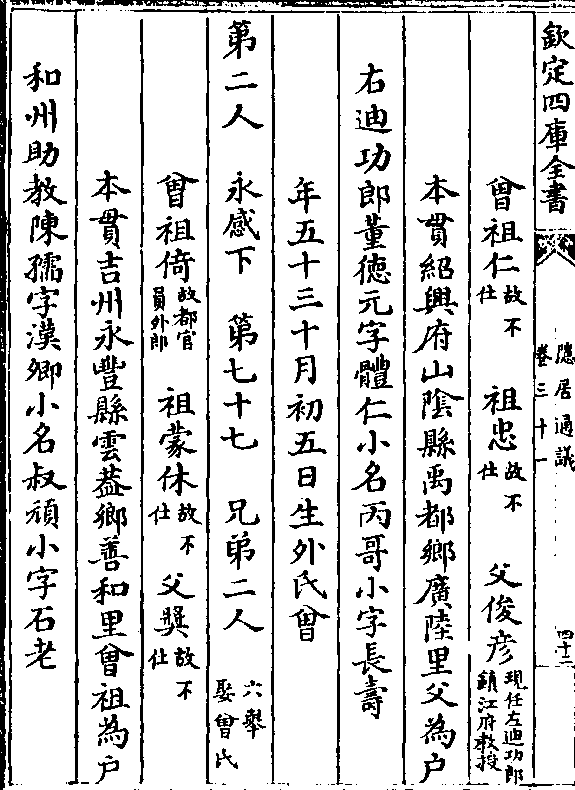 欽定四庫全書
隱居通議
卷三十一
四十二
曾祖仁故不仕 祖忠故不仕 父俊彥現任左迪功郎鎮江府教授
本貫紹興府山陰縣禹都鄉廣陸里父為户
右迪功郎董德元字體仁小名丙哥小字長壽
年五十三十月初五日生外氏曾
第二人 永感下 第七十七 兄弟二人 六舉娶曾氏
曾祖倚故都官員外郎 祖蒙休故不仕 父奬故不仕
本貫吉州永豐縣雲葢鄉善和里曾祖為户
和州助教陳孺字漢卿小名叔頑小字石老